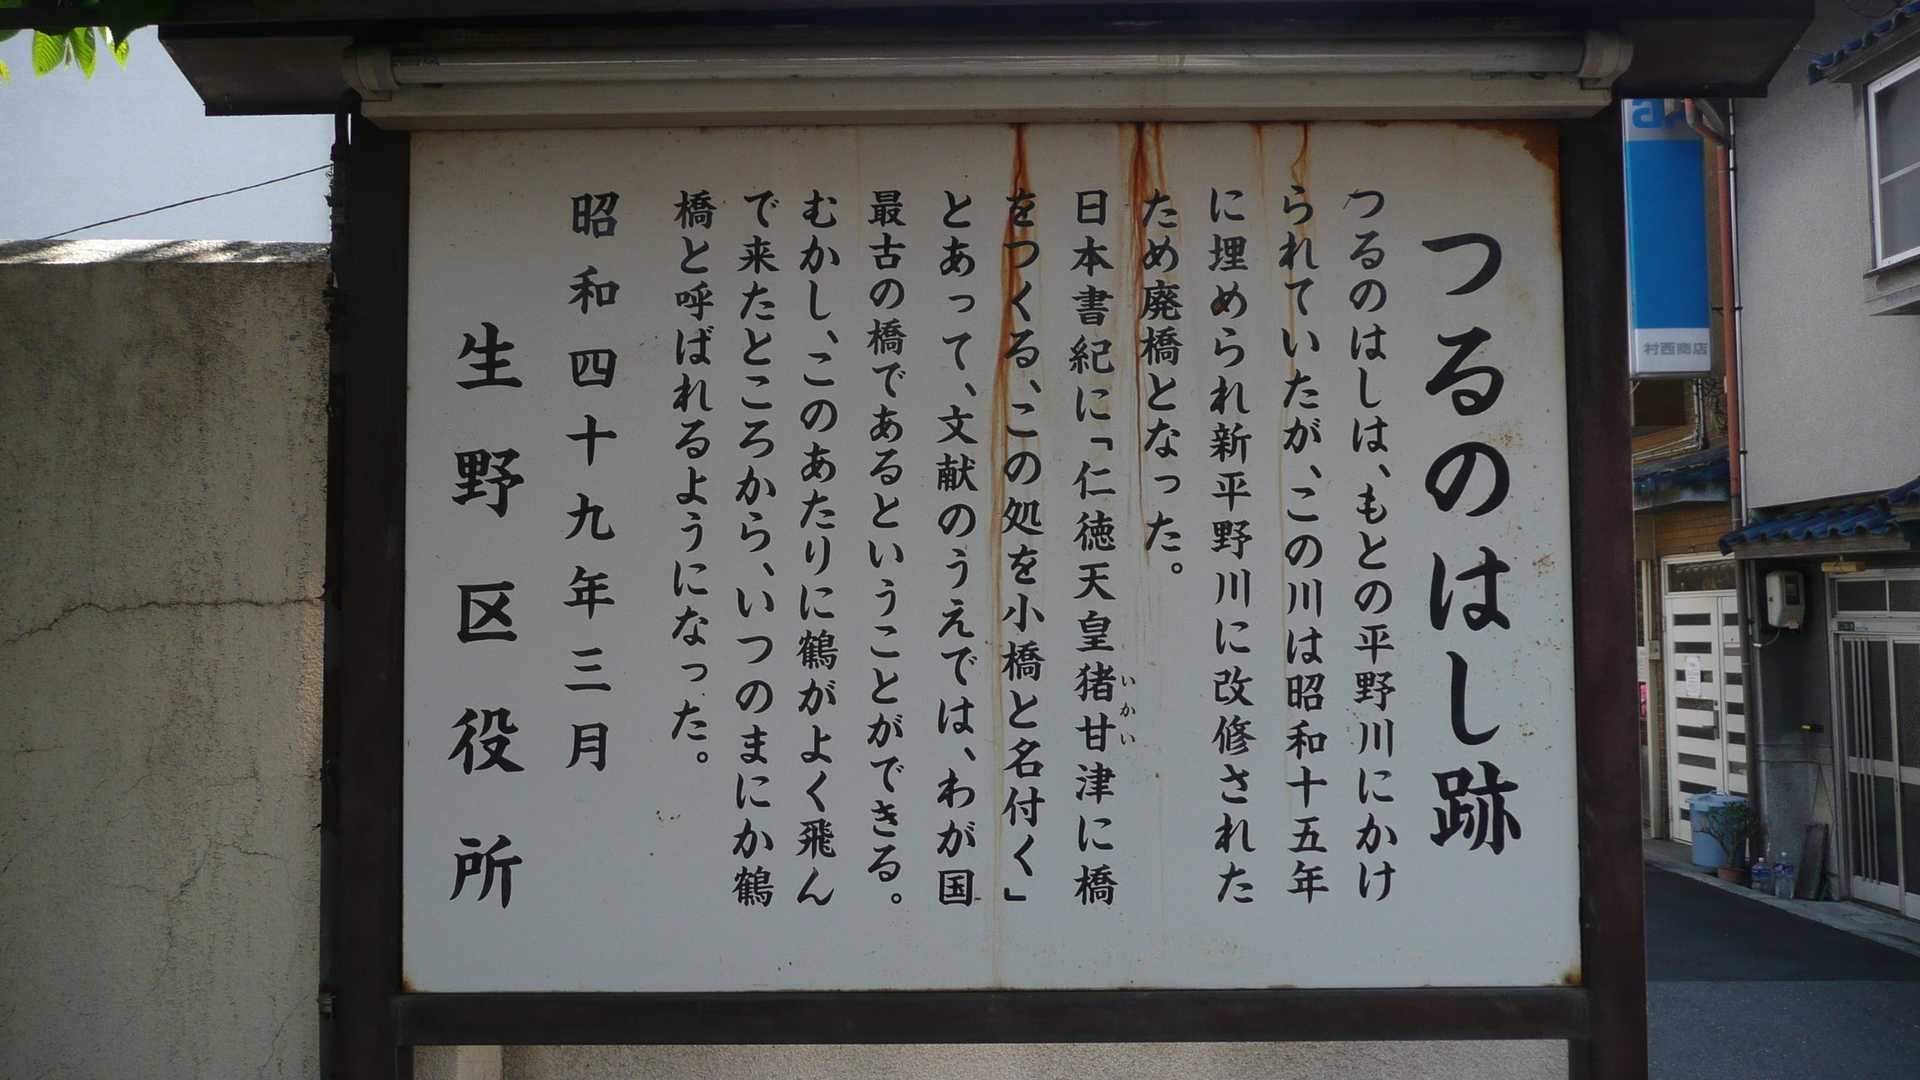 つるのはし跡
つるのはしは、もとの平野川にかけ
られていたが、この川は昭和十五年
に埋められ新平野川に改修された
ため廃橋となった。
日本書紀に「仁徳天皇猪甘津に橋
いかい
をつくる、この処を小橋と名付く」
とあって、文献のうえでは、わが国
最古の橋であるということができる。
むかし、このあたりに鶴がよく飛ん
で来たところから、いつのまにか鶴
橋と呼ばれるようになった。
昭和四十九年三月
生野区役所
村西商店